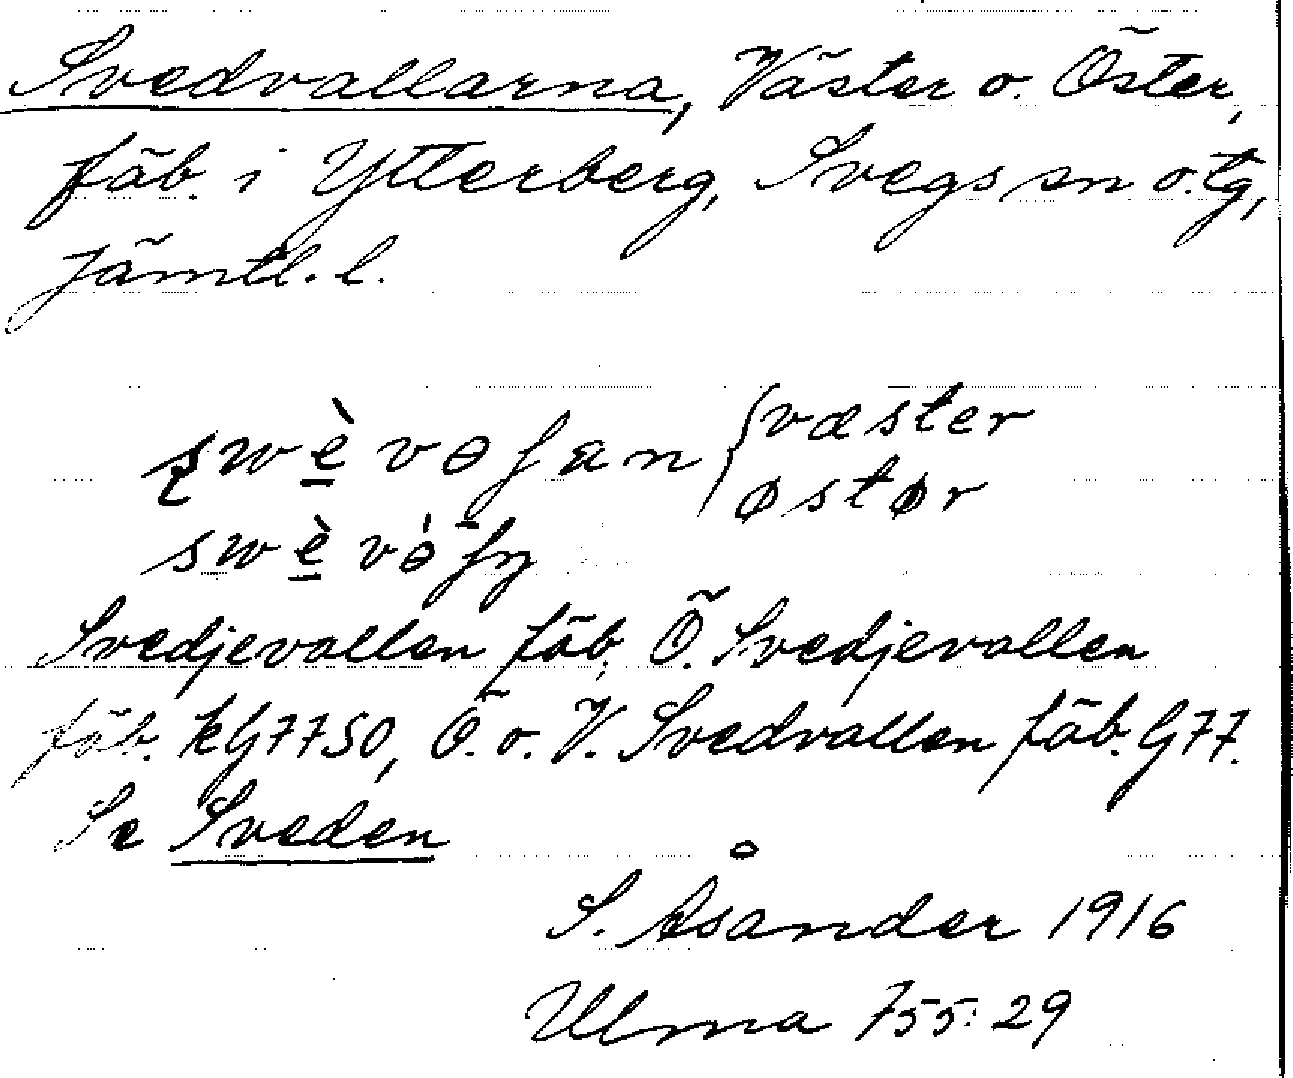 Svedvallarna, Väster o. Öster,
fäb. i Ytterberg, Svegs sn o. tg,
Jämtl. l.
væster
swè̱vɵʃan
østør
swè̱vɵ̀ʃn̥
Svedjevallen fäb, Ö. Svedjevallen
fäb. kG7750, Ö. o. V. Svedvallen fäb. G77.
Se Sveden
S. Åsander 1916
Ulma 755:29